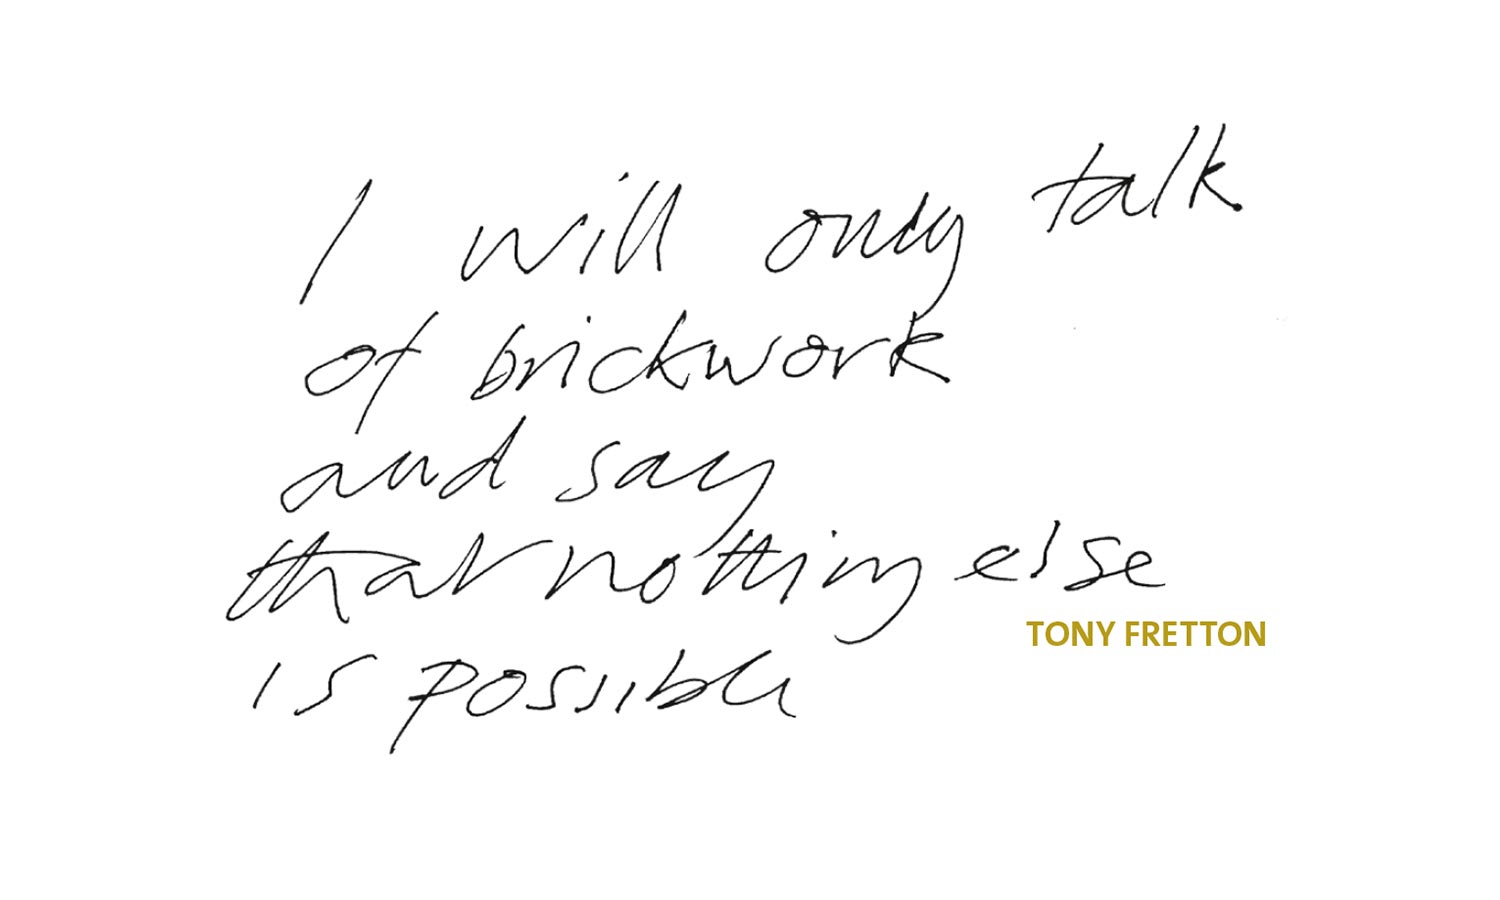 I will only talk
of brickwork
and say
that nothing else
TONY FRETTON
is possible